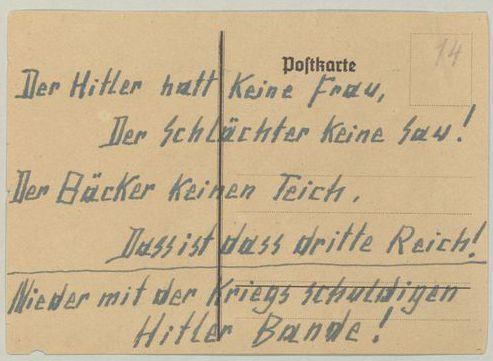 Postkarte
14
Der Hitler hatt Keine Frau,
Der Schlächter Keine Sau!
Der Bäcker Keinen Teich.
Dass ist dass dritte Reich!
Nieder mit der Kriegs schuldigen
Hitler Bande!